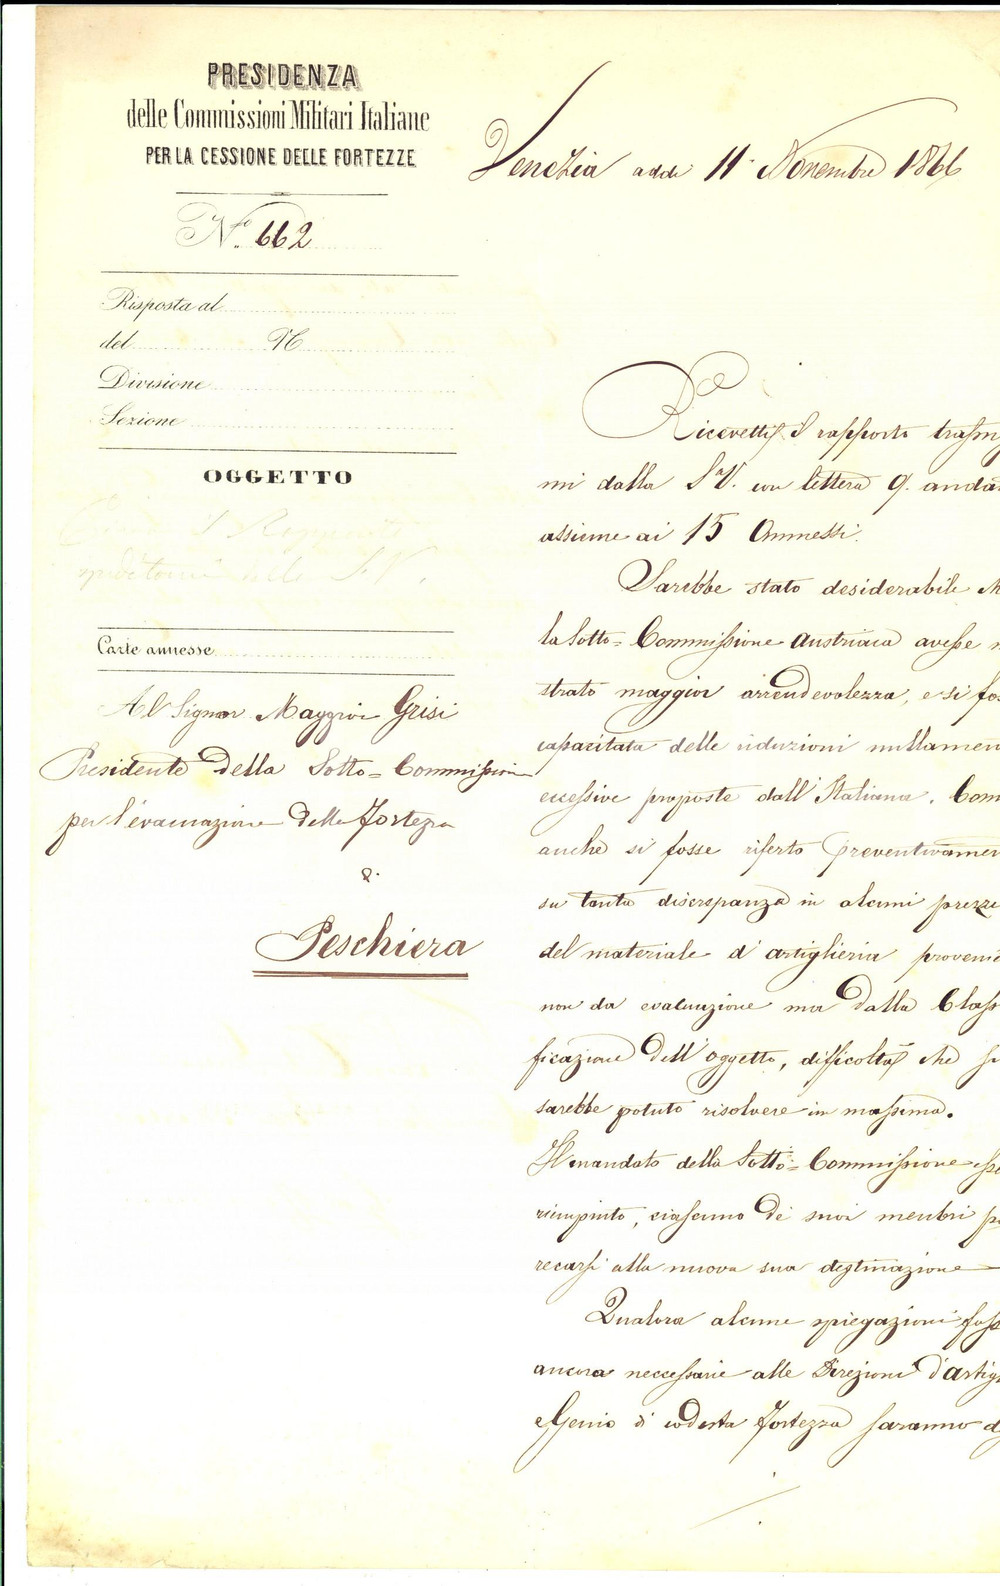 PRESIDENZA
delle Commissioni Militari Italiane
PER LA CESSIONE DELLE FORTEZZE
N.º 662
Risposta al
del N
Divisione
Sezione
OGGETTO
delle S.V.
Carte annesse
Al Signor Maggior Grisi
Presidente della Sotto=Commission
per l'evacuazione della Fortezza
Peschiera
Venezia addi 11 Novembre 1866
Ricevetti il rapporto trasm
mi dalla S.V. con lettera 9. anda
assieme ai 15 Annessi.
Sarebbe stato desiderabile
la Sotto=Commissione Austriaca avesse
strato maggior arrendevolezza, e si fos
capacitata delle riduzioni nullamen
eccessive proposte dall'Italiana. Com
anche si fosse riferto preventivamen
su tanta discrepanza in alcuni prezzi
del materiale d'artiglieria provenie
non da evaluazione ma dalla Class
ficazione dell'oggetto, difficoltà che si
sarebbe potuto risolvere in massima.
Il mandato della Sotto=Commissione
riempiuto, ciascuno de' suoi membri p
recarsi alla nuova sua destinazione
Qualora alcune spiegazioni foss
ancora neccessarie alle Direzioni d'artig
e Genio di codesta Fortezza saranno d